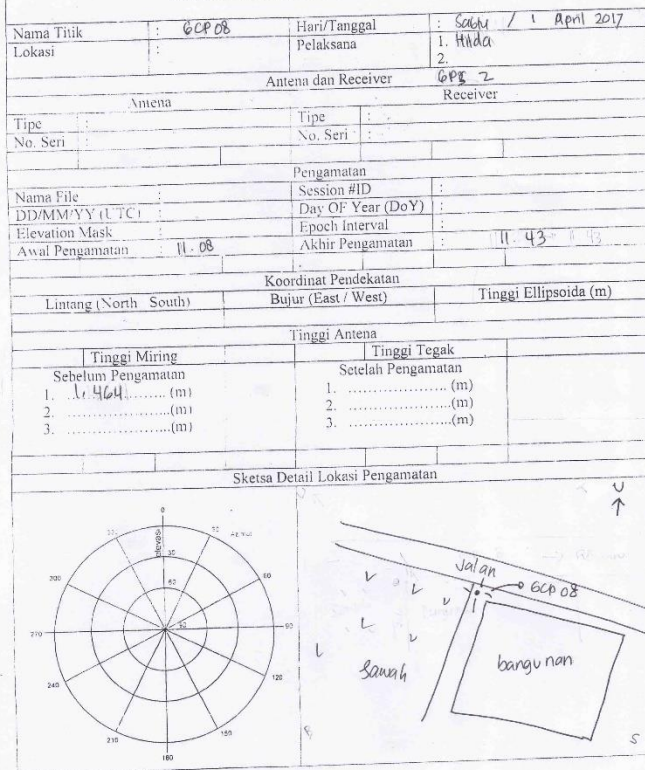 Nama Titik : GCP 08 Hari/Tanggal : Sabtu / 1 April 2017
Lokasi : Pelaksana 1. Hilda
2.
Antena dan Receiver GPS 2
Antena Receiver
Tipe : Tipe :
No. Seri : No. Seri :
Pengamatan
Nama File : Session #ID :
DD/MM/YY (UTC) : Day OF Year (DoY) :
Elevation Mask : Epoch Interval :
Awal Pengamatan : 11.08 Akhir Pengamatan : 11.43
Koordinat Pendekatan
Lintang (North South) Bujur (East / West) Tinggi Ellipsoida (m)
Tinggi Antena
Tinggi Miring Tinggi Tegak
Sebelum Pengamatan Setelah Pengamatan
1. 1.464 (m) 1. .................... (m)
2. ....................(m) 2. ....................(m)
3. ....................(m) 3. ....................(m)
Sketsa Detail Lokasi Pengamatan
0
30
60
90
120
150
180
210
240
270
300
elevasi
30
60
90
U
Jalan
GCP 08
Sawah
bangunan
S